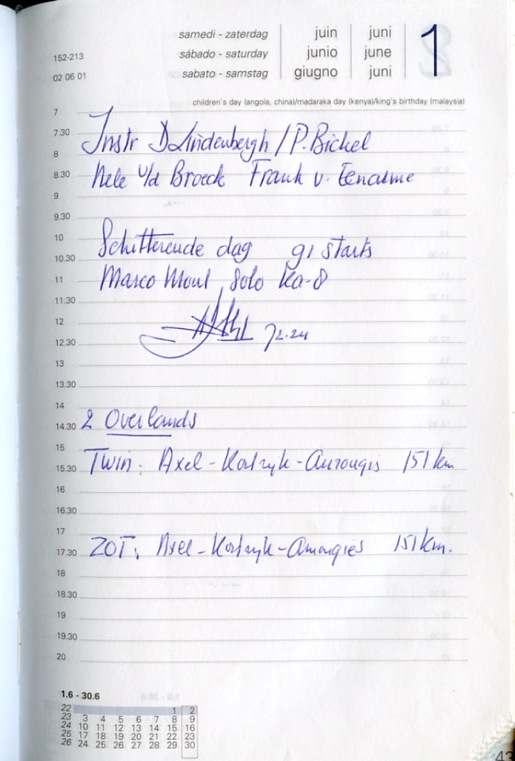 samedi - zaterdag juin juni 1
152-213 sábado - saturday junio june
02 06 01 sabato - samstag giugno juni
children's day (angola, china)/madaraka day (kenya)/king's birthday (malaysia)
7
7.30 Instr D Lindenbergh / P. Bickel
8
8.30 Nele v/d Broeck Frank v.
9
9.30
10 Schitterende dag 91 starts
10.30
11 Marco Moul, Solo Ka-8
11.30
12
12.30
13
13.30
14
14.30 2 Overlands
15
15.30 Twin: Axel - Kortryk - 151 km
16
16.30
17
17.30 ZOT: Axel - Kortryk - Amougies 151 km.
18
18.30
19
19.30
20
1.6 - 30.6
22 1 2
23 3 4 5 6 7 8 9
24 10 11 12 13 14 15 16
25 17 18 19 20 21 22 23
26 24 25 26 27 28 29 30